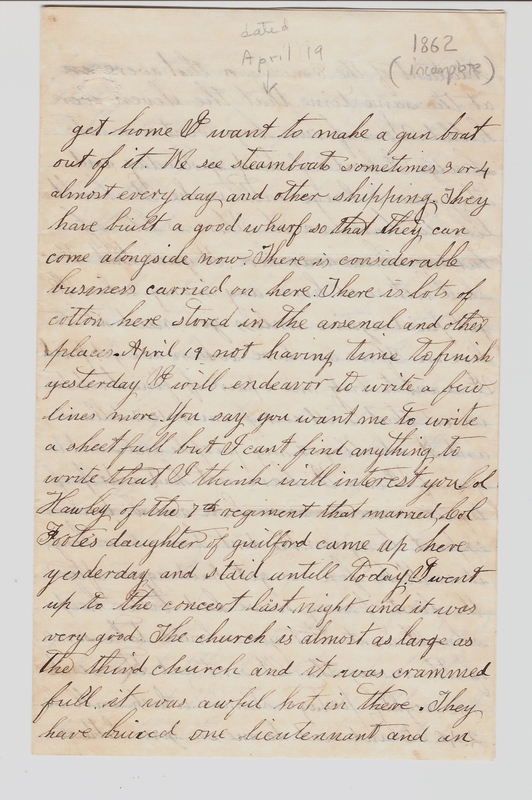 dated
April 19
1862
(incomplete)
get home I want to make a gun boat
out of it. We see steamboats sometimes 3 or 4
almost every day and other shipping. They
have built a good wharf so that they can
come alongside now. There is considerable
business carried on here. There is lots of
cotton here stored in the arsenal and other
places. April 19 not having time to finish
yesterday I will endeavor to write a few
lines more. You say you want me to write
a sheet full but I cant find anything to
write that I think will interest you. Col
Hawley of the 7th regiment that married Col
Foote's daughter of guilford came up here
yesderday and staid untill today. I went
up to the concert last night and it was
very good. The church is almost as large as
the third church and it was crammed
full. it was awful hot in there. They
have buried one lieutennant and an